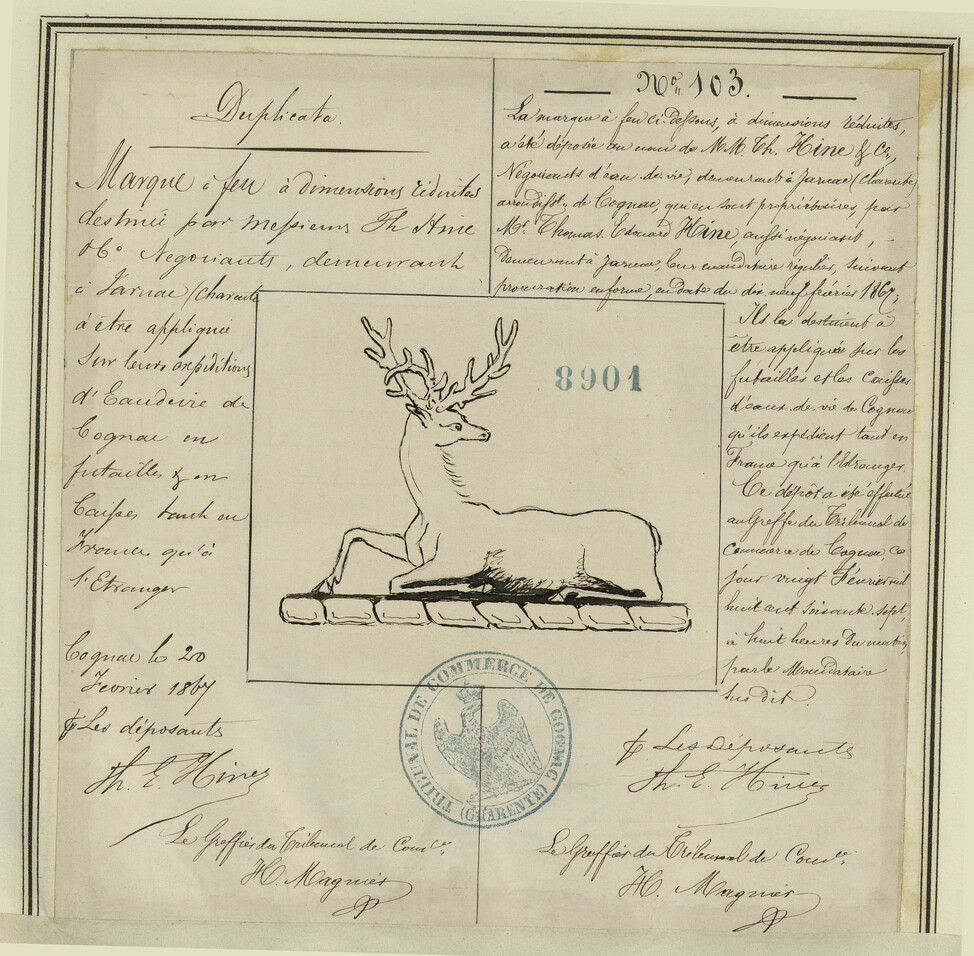 Duplicata.
Marque à feu à dimensions réduites
destinée par Messieurs Th Hine
& Co Negociants, demeurant
à Jarnac (Charente
à être appliquée
sur leurs expéditions
d'Eaudevie de
Cognac en
futailles & en
Caisses tant en
France qu'à
l'Etranger
Cognac le 20
Fevrier 1867
Les déposants
Th. E. Hine
Le Greffier du Tribunal de Comce.
H. Magnier
No. 103.
La marque à feu ci-dessous, à dimensions réduites,
a été déposée au nom de MM. Th. Hine & Ce,
Négociants d'eau-de-vie, demeurant à Jarnac (Charente)
arrondisst. de Cognac, qui en sont propriétaires, par
Mr. Thomas Edouard Hine, aussi négociant,
demeurant à Jarnac, leur mandataire régulier, suivant
procuration en forme, en date du dix neuf février 1867;
Ils la destinent à
être appliquée sur les
futailles et les caisses
d'eaux-de-vie de Cognac
qu'ils expédient tant en
France qu'à l'Etranger.
Ce dépôt a été effectué
au Greffe du Tribunal de
Commerce de Cognac, ce
jour vingt Février mil
huit cent soixante-sept,
à huit heures du matin
par le Mandataire
sus dit.
Les Déposants
Th. E. Hine
Le Greffier du Tribunal de Comce.
H. Magnier
8901
TRIBUNAL DE COMMERCE DE COGNAC (CHARENTE)